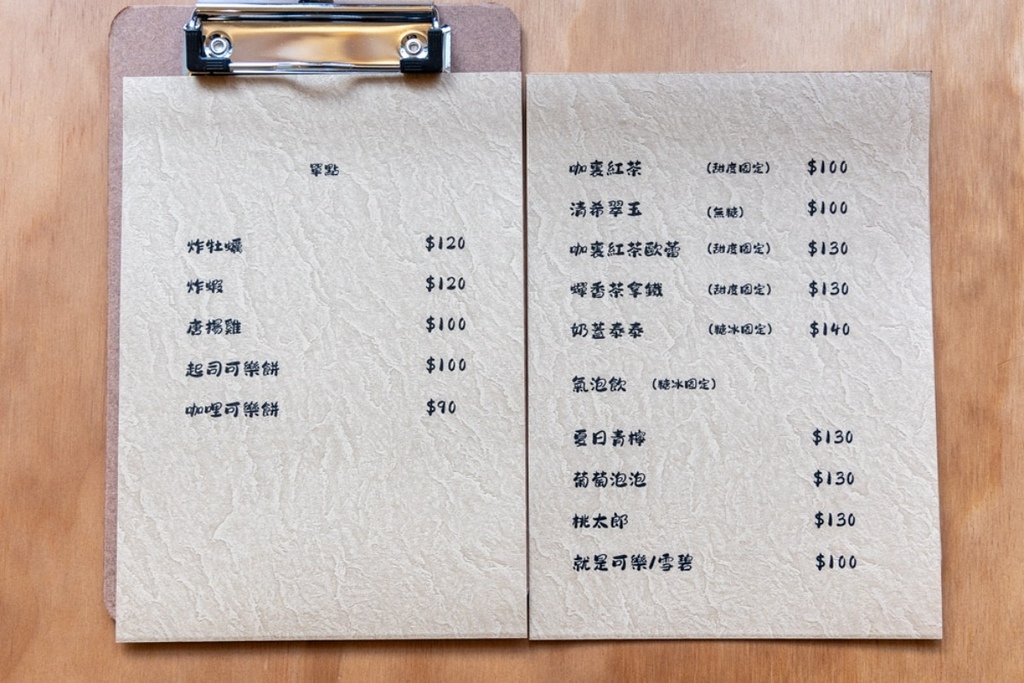 單點
炸牡蠣 $120
炸蝦 $120
唐揚雞 $100
起司可樂餅 $100
咖哩可樂餅 $90
咖裏紅茶 (甜度固定) $100
清希翠玉 (無糖) $100
咖裏紅茶歐蕾 (甜度固定) $130
蟬香茶拿鐵 (甜度固定) $130
奶蓋泰泰 (糖冰固定) $140
氣泡飲 (糖冰固定)
夏日青檸 $130
葡萄泡泡 $130
桃太郎 $130
就是可樂/雪碧 $100